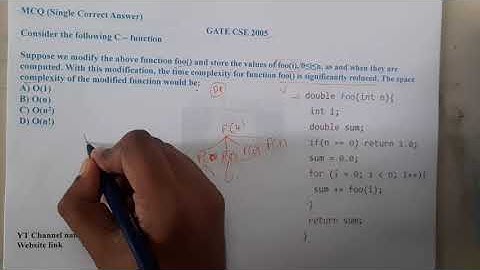 MCQ (Single Correct Answer)
GATE CSE 2005
Consider the following C – function
Suppose we modify the above function foo() and store the values of foo(i), 0≤i≤n, as and when they are
computed. With this modification, the time complexity for function foo() is significantly reduced. The space
complexity of the modified function would be:
A) O(1)
B) O(n)
C) O(n²)
D) O(n!)
double foo(int n){
int i;
double sum;
if(n == 0) return 1.0;
sum = 0.0;
for (i = 0; i < n; i++){
sum += foo(i);
}
return sum;
}
F(4)
YT Channel
Website link